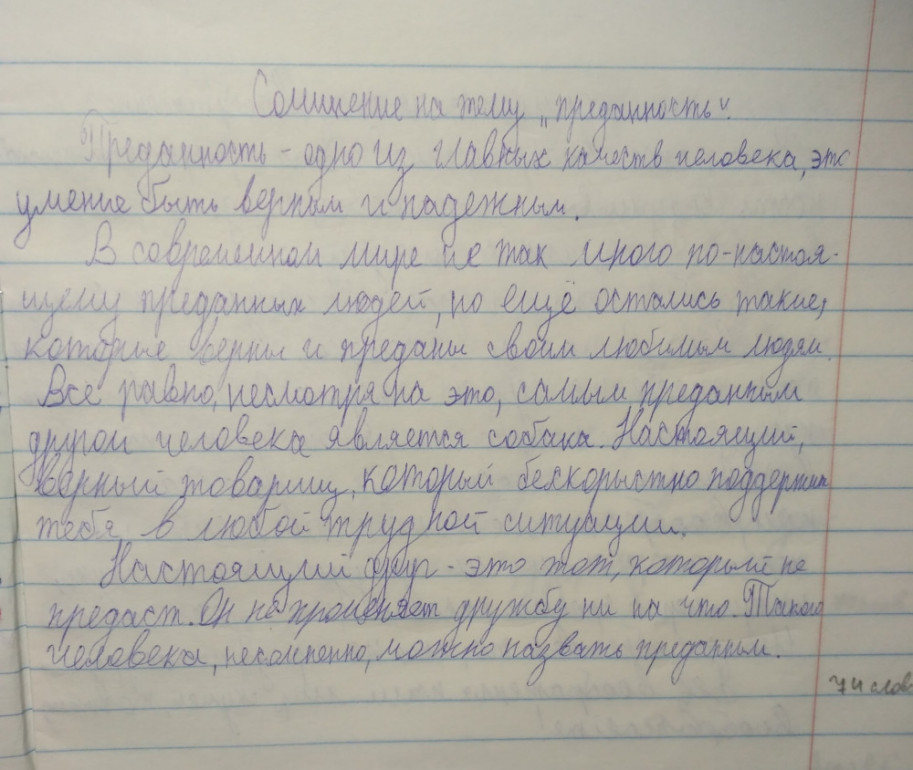 Сочинение на тему „преданность".
Преданность - одно из главных качеств человека, это
умение быть верным и надежным.
В современном мире не так много по-настоя-
щему преданных людей, но ещё остались такие,
которые верны и преданы своим любимым людям.
Всё равно, несмотря на это, самым преданным
другом человека является собака. Настоящий,
верный товарищ, который бескорыстно поддержит
тебя в любой трудной ситуации.
Настоящий друг - это тот, который не
предаст. Он не променяет дружбу ни на что. Такого
человека, несомненно, можно назвать преданным.
74 слов